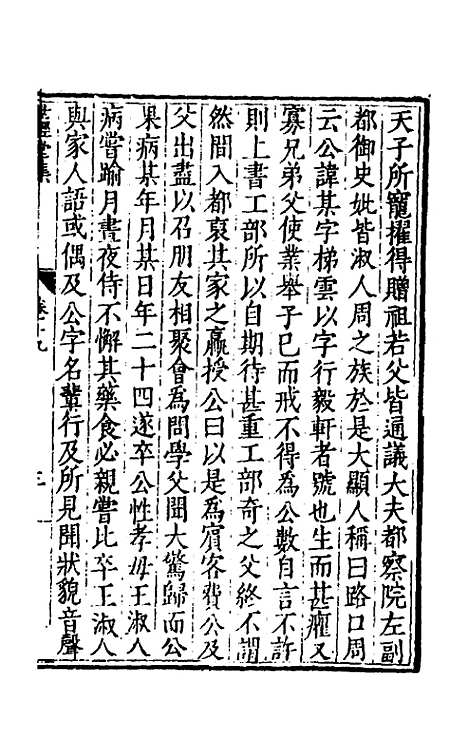 天子所寵擢得贈祖若父皆通議大夫都察院左副
都御史妣皆淑人周之族於是大顯人稱曰路口周
云公諱某字梯雲以字行毅軒者號也生而甚癯又
寡兄弟父使業舉子已而戒不得為公數自言不許
則上書工部所以自期待甚重工部奇之父終不謂
然間入都裒其家之羸授公曰以是為賓客費公及
父出盡以召朋友相聚會為問學父聞大驚歸而公
果病某年月某日年二十四遂卒公性孝母王淑人
病嘗踰月晝夜侍不懈其藥食必親嘗比卒王淑人
與家人語或偶及公字名輩行及所見聞狀貌音聲
世經堂集
卷十九
三